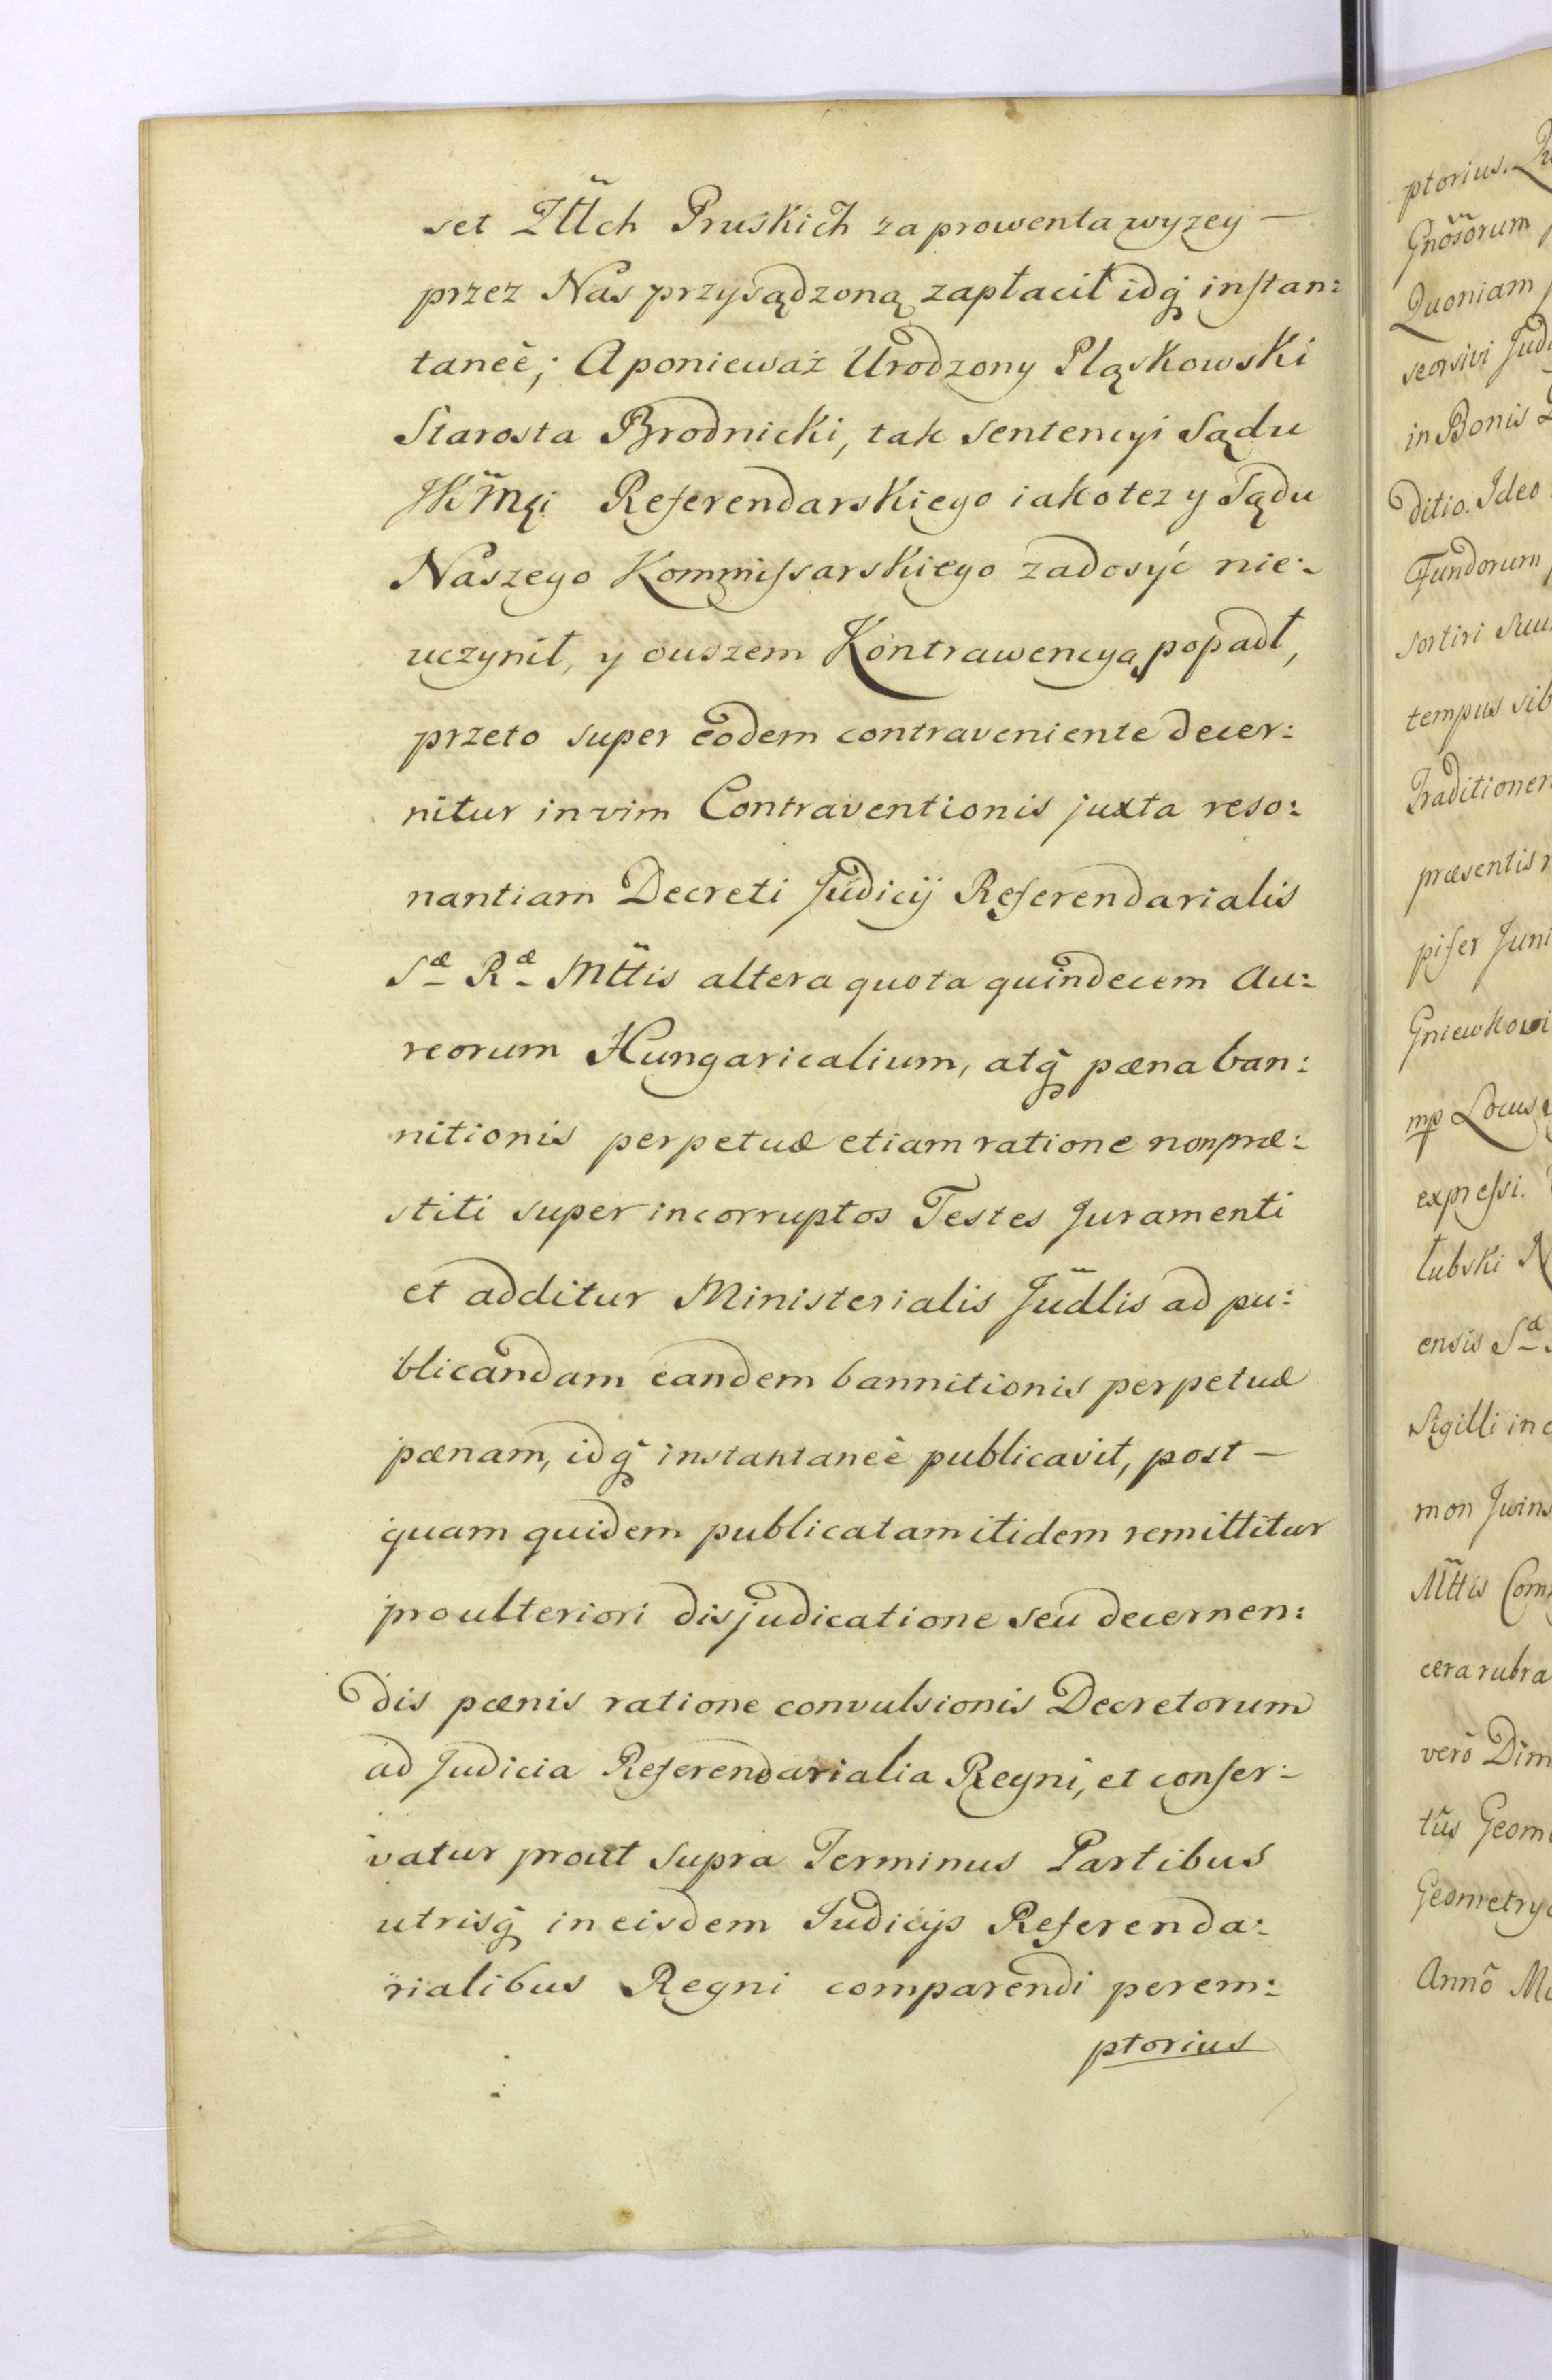 set Złłch Pruskich za prowenta wyzey —
przez Nas przysądzoną zapłacił idq̃ instan:
taneè; A ponieważ Urodzony Pląskowski
Starosta Brodnicki, tak Sentencyi Sądu
JKM̃ci Referendarskiego iako tez y Sądu
Naszego Kommissarskiego zadosyć nie:
uczynił, y owszem Kontrawencyą popadł,
przeto super eodem contraveniente decer:
nitur in vim Contraventionis juxta reso:
nantiam Decreti Judicij Referendarialis
Sæ Ræ Mttis altera quota quindecem Au:
reorum Hungaricalium, atq̃ pæna ban:
nitionis perpetuæ etiam ratione non præ:
stiti super incorruptos Testes Juramenti
et additur Ministerialis Judlis ad pu:
blicandam eandem bannitionis perpetuæ
pænam, idq̃ instantaneè publicavit, post —
quam quidem publicatam itidem remittitur
pro ulteriori disjudicatione seu decernen:
dis pænis ratione convulsionis Decretorum
ad Judicia Referendarialia Regni, et conser:
vatur prout supra Terminus Partibus
utrisq̃ in eisdem Judicijs Referenda:
rialibus Regni comparendi perem:
ptorius
ptorius.
Gnõsorum
Quoniam
seorsivi
in Bonis
ditio. Ideo
Fundorum
sortiri
tempus
præsentis
mp Locus
expressi.
łubski
ensis Sæ
Sigilli in
mon
Mttis
cera rubra
verò
tũs
Annô